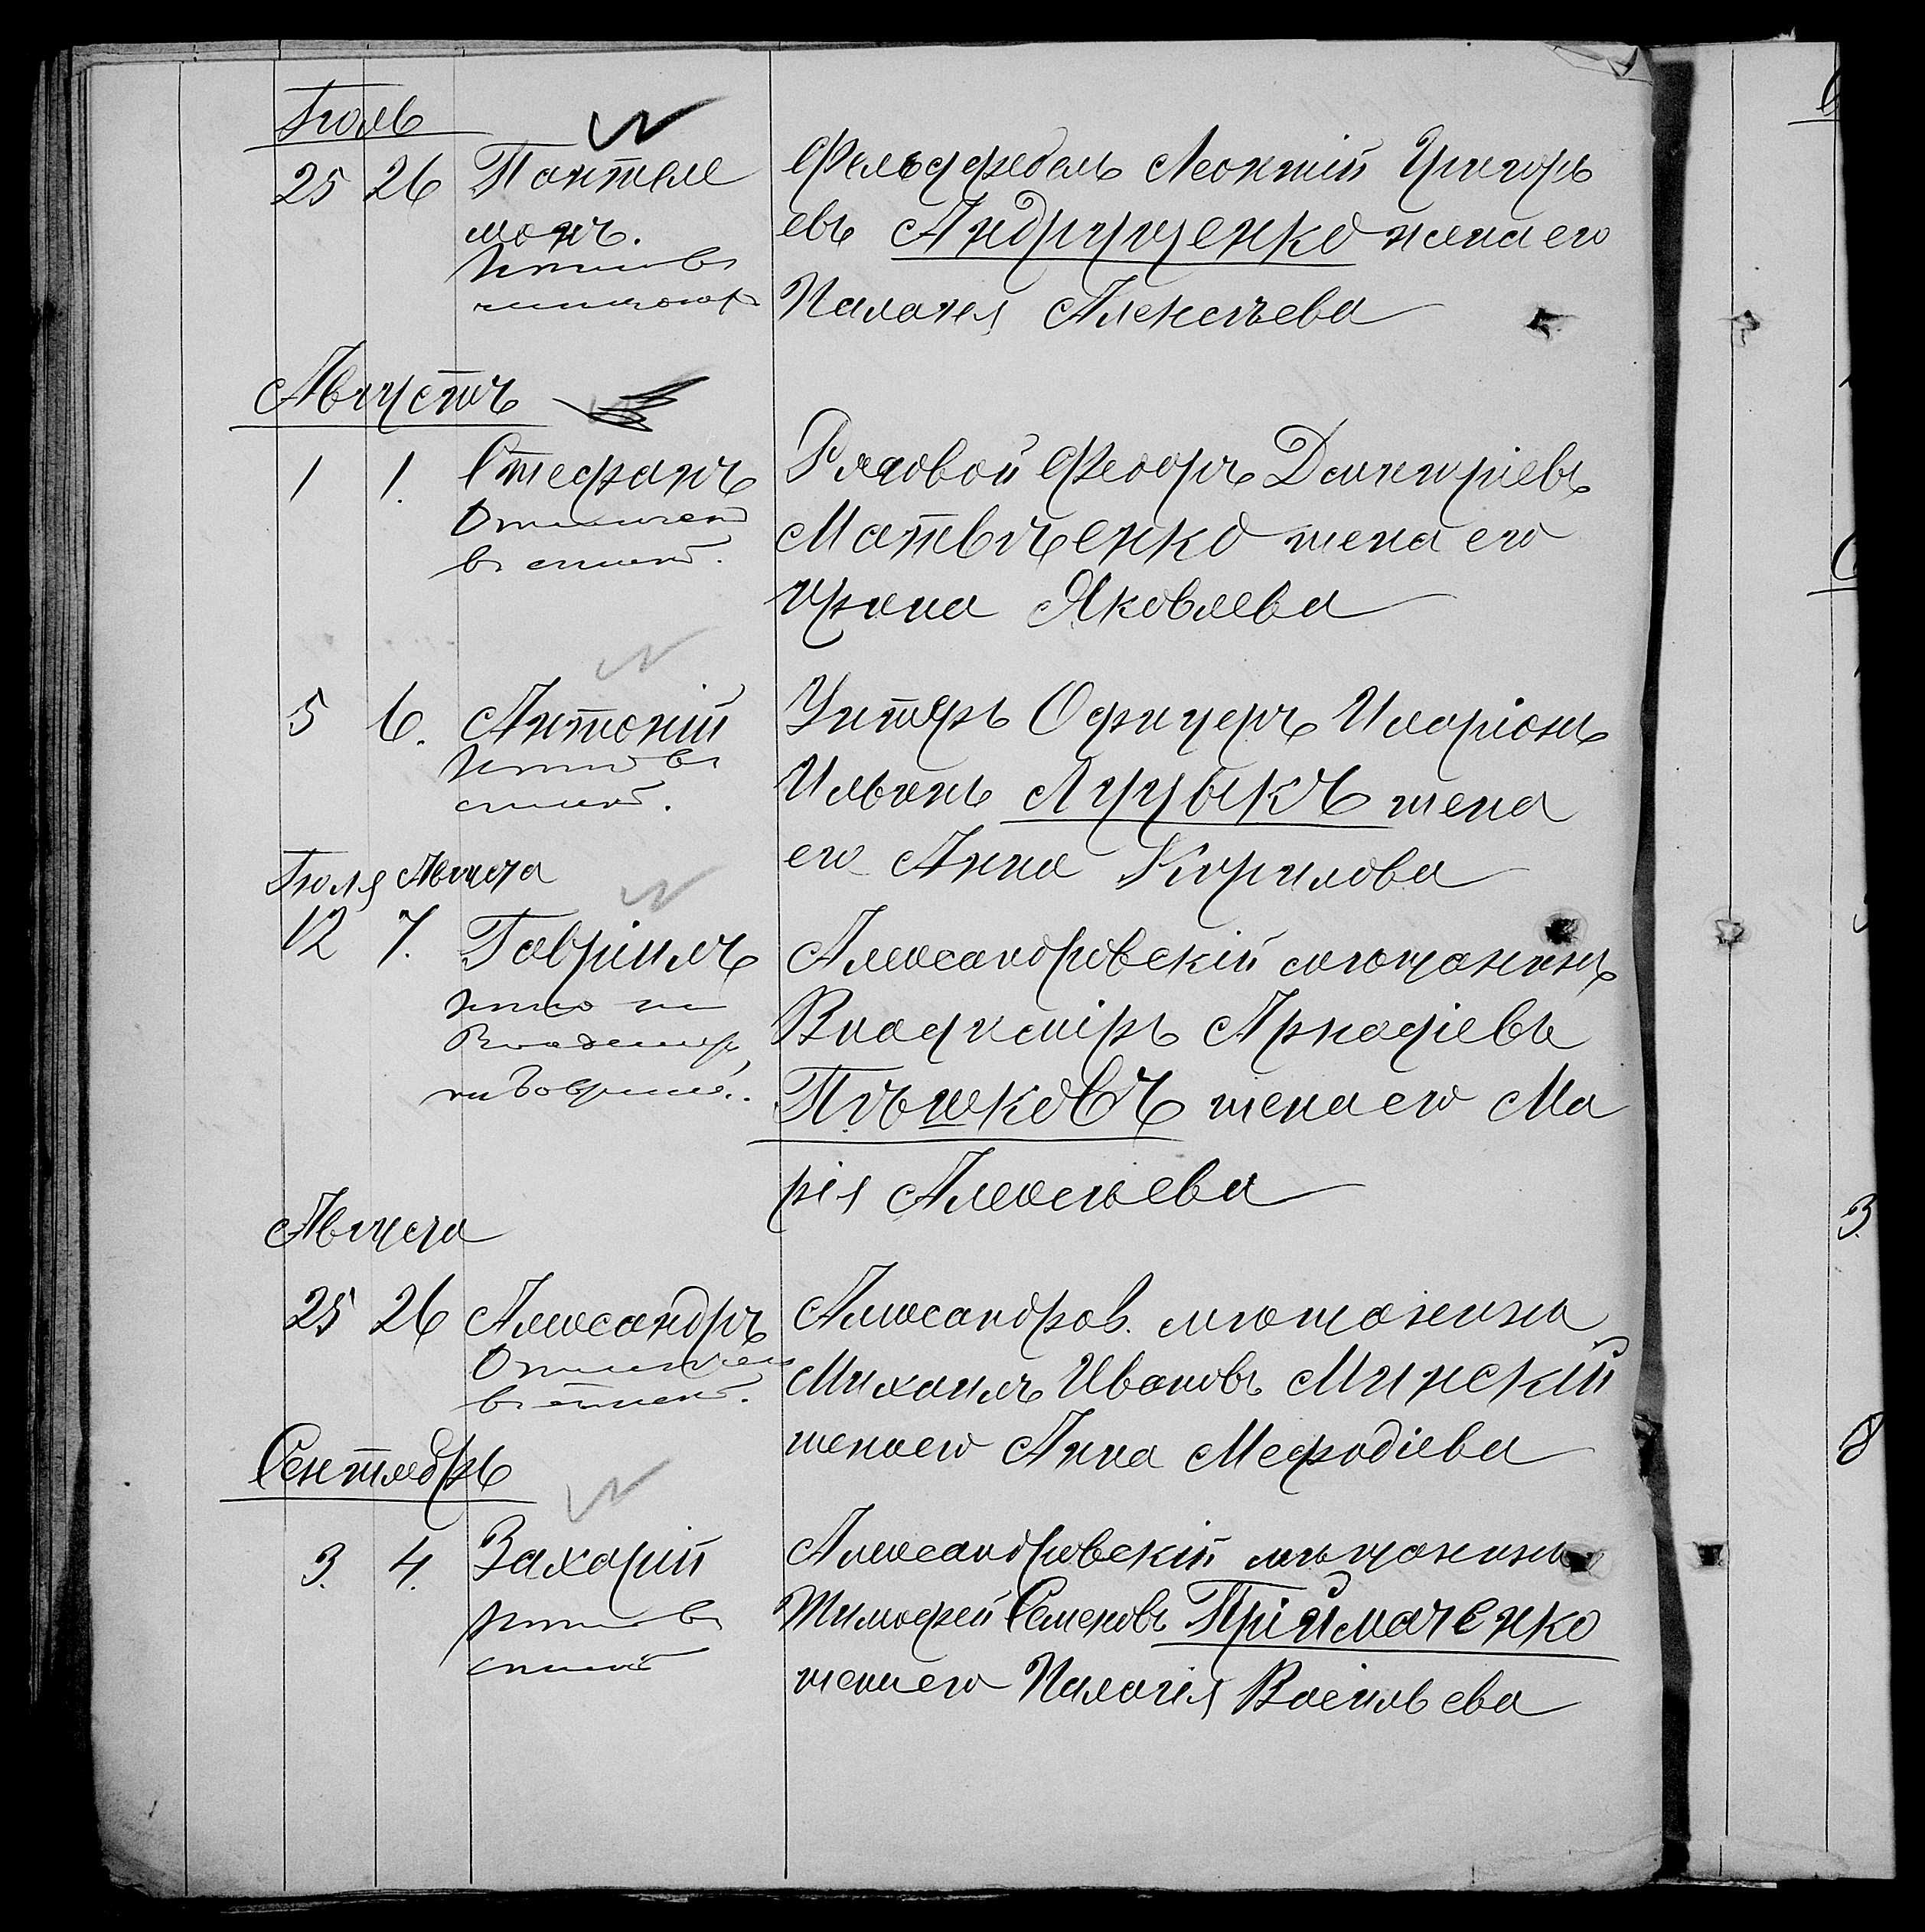 Іюль
25 26 Пантеле
монъ.
Фельдфебель Леонтій Григорь
евъ Андрущенко жена его
Палагея Алексѣева
Августъ
1 1. Стефанъ
въ списк.
Рядовой Феодръ Димитріевъ
Матвѣенко жена его
Ирина Яковлева
5 6. Антоній
списк.
Унтеръ Офицеръ Иларіонъ
Ильинъ Луцыкъ жена
его Анна Кирилова
Іюля Августа
12 7. Гавріилъ
Александровскій мѣщанинъ
Владиміръ Аркадіевъ
Пѣшковъ жена его Ма
рія Алексѣева
Августа
25 26 Александръ
въ списк.
Александров. мѣщанинъ
Михаилъ Ивановъ Минскій
жена его Анна Мефодіева
Сентябрь
3. 4. Захарій
Александровскій мѣщанинъ
Тимофей Семеновъ Пріймаченко
жена его Палагія Васильева
3.
8